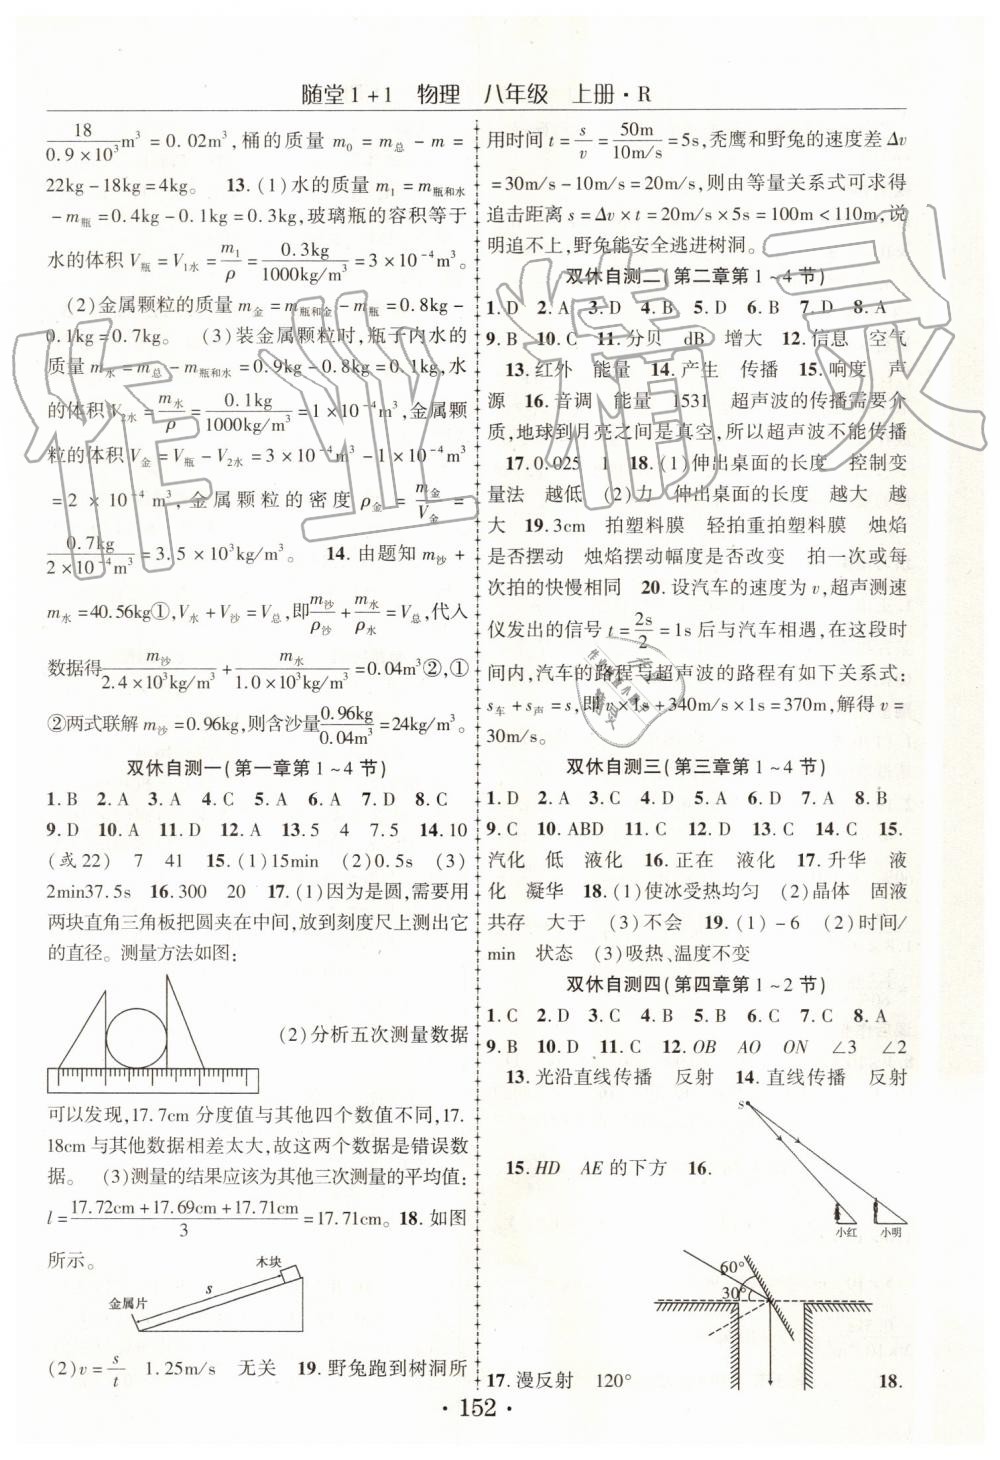 随堂1+1 物理 八年级 上册·R
18/(0.9×10³) m³=0.02m³,桶的质量 m₀=m总-m=
22kg-18kg=4kg。 13.(1)水的质量 m₁=m瓶和水
-m瓶=0.4kg-0.1kg=0.3kg,玻璃瓶的容积等于
水的体积 V瓶=V₁水=m₁/ρ=0.3kg/(1000kg/m³)=3×10⁻⁴m³。
(2)金属颗粒的质量 m金=m瓶和金-m瓶=0.8kg-
0.1kg=0.7kg。 (3)装金属颗粒时,瓶子内水的
质量 m水=m总-m瓶和水=0.9kg-0.8kg=0.1kg,水
的体积 V₂水=m水/ρ=0.1kg/(1000kg/m³)=1×10⁻⁴m³,金属颗
粒的体积 V金=V瓶-V₂水=3×10⁻⁴m³-1×10⁻⁴m³
=2×10⁻⁴m³,金属颗粒的密度 ρ金=m金/V金=
0.7kg/(2×10⁻⁴m³)=3.5×10³kg/m³。 14.由题知 m沙+
m水=40.56kg①,V水+V沙=V总,即m沙/ρ沙+m水/ρ水=V总,代入
数据得m沙/(2.4×10³kg/m³)+m水/(1.0×10³kg/m³)=0.04m³②,①
②两式联解 m沙=0.96kg,则含沙量0.96kg/0.04m³=24kg/m³。
双休自测一(第一章第1~4节)
1.B 2.A 3.A 4.C 5.A 6.A 7.D 8.C
9.D 10.A 11.D 12.A 13.5 4 7.5 14.10
(或22) 7 41 15.(1)15min (2)0.5s (3)
2min37.5s 16.300 20 17.(1)因为是圆,需要用
两块直角三角板把圆夹在中间,放到刻度尺上测出它
的直径。测量方法如图:
(2)分析五次测量数据
可以发现,17.7cm 分度值与其他四个数值不同,17.
18cm与其他数据相差太大,故这两个数据是错误数
据。 (3)测量的结果应该为其他三次测量的平均值:
l=(17.72cm+17.69cm+17.71cm)/3=17.71cm。 18.如图
所示。
木块
s
金属片
(2)v=s/t 1.25m/s 无关 19.野兔跑到树洞所
用时间 t=s/v=50m/(10m/s)=5s,秃鹰和野兔的速度差 Δv
=30m/s-10m/s=20m/s,则由等量关系式可求得
追击距离 s=Δv×t=20m/s×5s=100m<110m,说
明追不上,野兔能安全逃进树洞。
双休自测二(第二章第1~4节)
1.D 2.A 3.D 4.B 5.D 6.B 7.D 8.A
9.B 10.C 11.分贝 dB 增大 12.信息 空气
13.红外 能量 14.产生 传播 15.响度 声
源 16.音调 能量 1531 超声波的传播需要介
质,地球到月亮之间是真空,所以超声波不能传播
17.0.025 1 18.(1)伸出桌面的长度 控制变
量法 越低 (2)力 伸出桌面的长度 越大 越
大 19.3cm 拍塑料膜 轻拍重拍塑料膜 烛焰
是否摆动 烛焰摆动幅度是否改变 拍一次或每
次拍的快慢相同 20.设汽车的速度为v,超声测速
仪发出的信号 t=2s/2=1s后与汽车相遇,在这段时
间内,汽车的路程与超声波的路程有如下关系式:
s车+s声=s,即 v×1s+340m/s×1s=370m,解得 v=
30m/s。
双休自测三(第三章第1~4节)
1.D 2.D 3.D 4.C 5.A 6.D 7.A 8.B
9.C 10.ABD 11.C 12.D 13.C 14.C 15.
汽化 低 液化 16.正在 液化 17.升华 液
化 凝华 18.(1)使冰受热均匀 (2)晶体 固液
共存 大于 (3)不会 19.(1)-6 (2)时间/
min 状态 (3)吸热,温度不变
双休自测四(第四章第1~2节)
1.C 2.D 3.C 4.B 5.C 6.C 7.C 8.A
9.B 10.D 11.C 12.OB AO ON ∠3 ∠2
13.光沿直线传播 反射 14.直线传播 反射
S
15.HD AE的下方 16.
小红 小明
60°
30°
17.漫反射 120° 18.
·152·
作业精灵